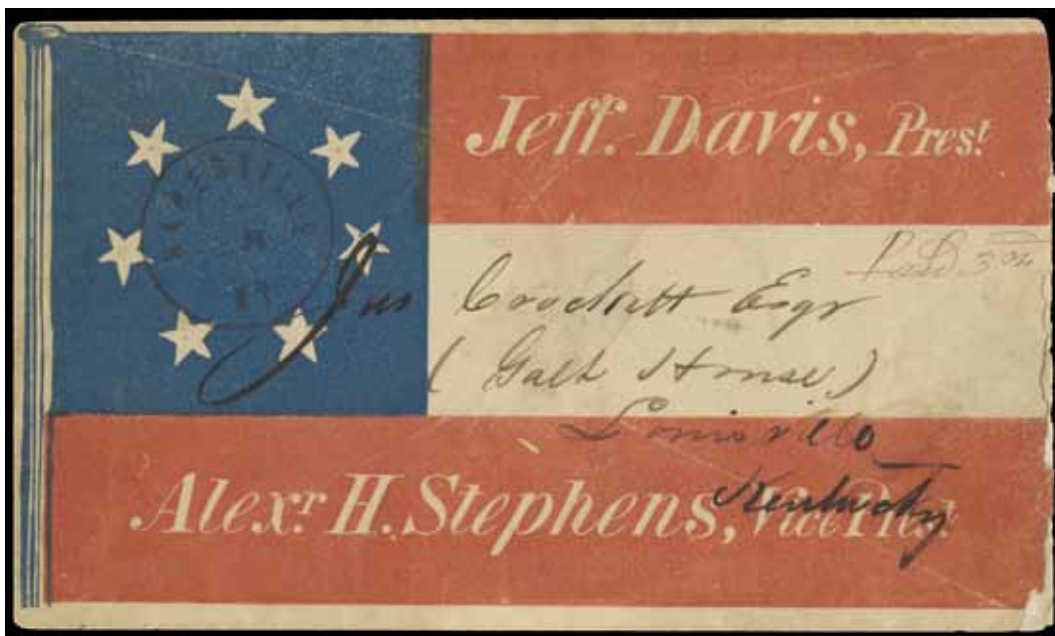 Jeff. Davis, Prest.
Paid 3
Jas Crockett Esqr
(Galt House)
Louisville
Kentucky
Alexr. H. Stephens, Vice Prest.